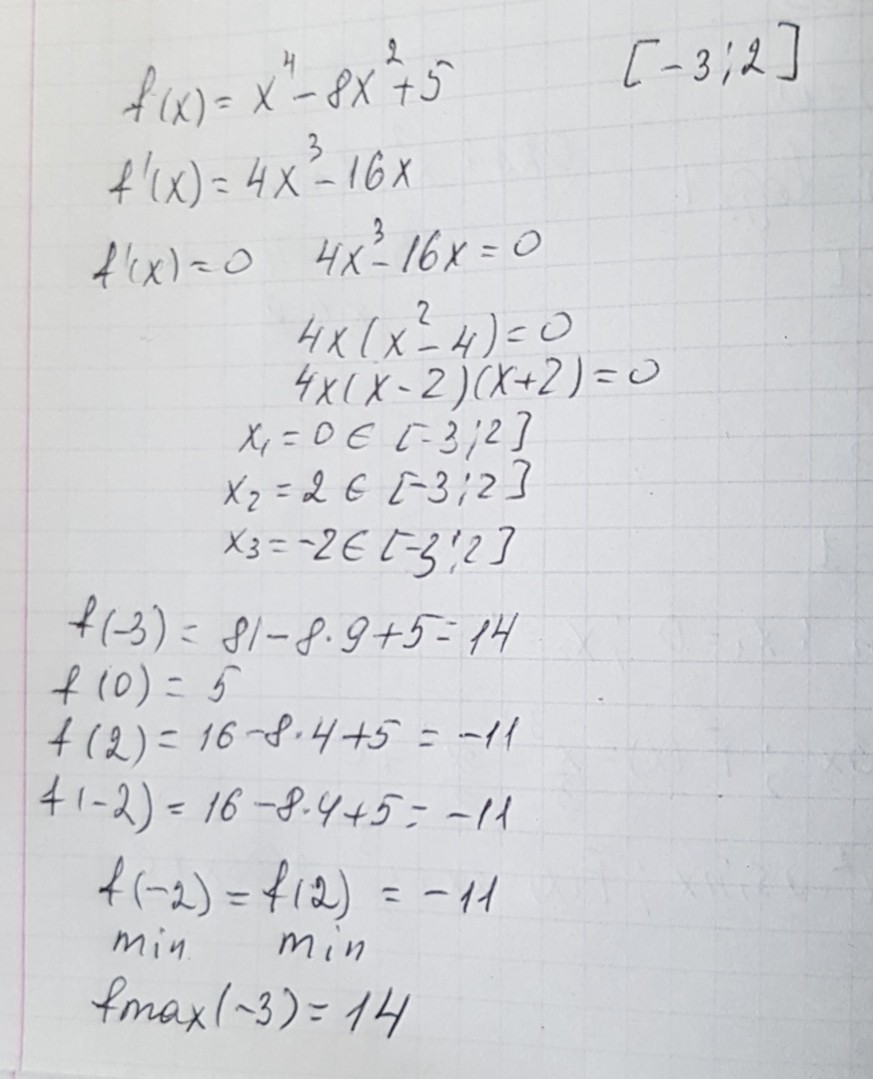 f(x) = x⁴ - 8x² + 5 [-3; 2]
f'(x) = 4x³ - 16x
f'(x) = 0 4x³ - 16x = 0
4x(x² - 4) = 0
4x(x - 2)(x + 2) = 0
x₁ = 0 ∈ [-3; 2]
x₂ = 2 ∈ [-3; 2]
x₃ = -2 ∈ [-3; 2]
f(-3) = 81 - 8·9 + 5 = 14
f(0) = 5
f(2) = 16 - 8·4 + 5 = -11
f(-2) = 16 - 8·4 + 5 = -11
f(-2) = f(2) = -11
min min
fmax(-3) = 14